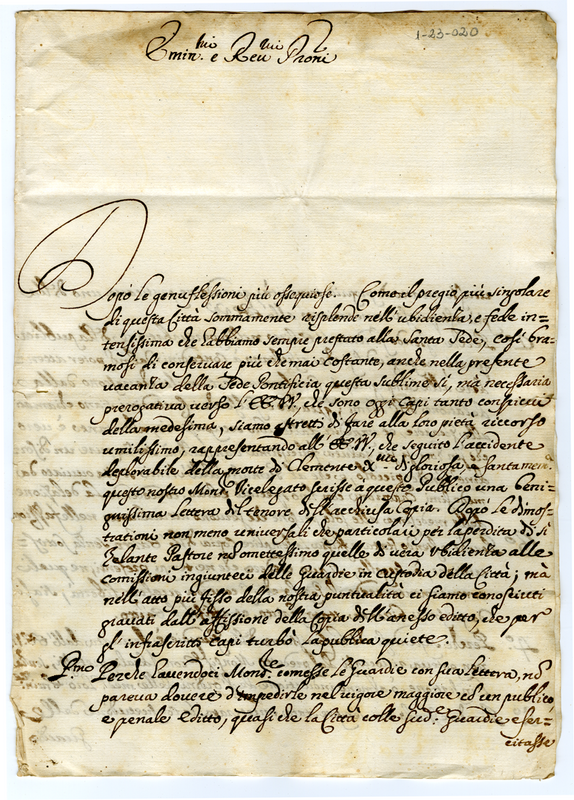 1-23-020
Emin.mi e Reu.mi Proni
Dopo le genuflessioni più ossequiose. Come il pregio più singolare
di questa Città sommamente risplende nell'ubidienza, e fede in=
tensissima che l'abbiamo sempre prestato alla Santa Sede, così bra=
mosi di conservare più che mai costante, anche nella presente
vacanza della Sede Pontificia questa sublime sì, mà necessaria
prerogativa verso l'EE.VV., che sono oggi Capi tanto conspicui
della medesima, siamo astretti di fare alla loro pietà ricorso
umilissimo, rappresentando all'EE.VV., che seguito l'accidente
deplorabile della morte di Clemente X.mo di gloriosa, e santa mem.a
questo nostro Mons.r Vicelegato scrisse à questo Publico una beni=
gnissima Lettera del tenore dell'acchiusa Copia. Dopo le dimos=
trationi non meno universali che particolari per la perdita di sì
Zelante Pastore nō omettessimo quelle di vera ubidienza alle
comissioni ingiunteci delle Guardie in custodia della Città; mà
nell'atto più fisso della nostra puntualità ci siamo conosciuti
gravati dall'affissione della Copia dell'anesso editto, che per
gl'infrascritti capi turbò la publica quiete.
P.mo Perche havendoci Mons.re comesse le Guardie con sua Lettera, nō
pareva dovere d'impedirle nel vigore maggiore cō un publico
e penale editto, quasi che la Città colle sud.e Guardie eser=
citasse